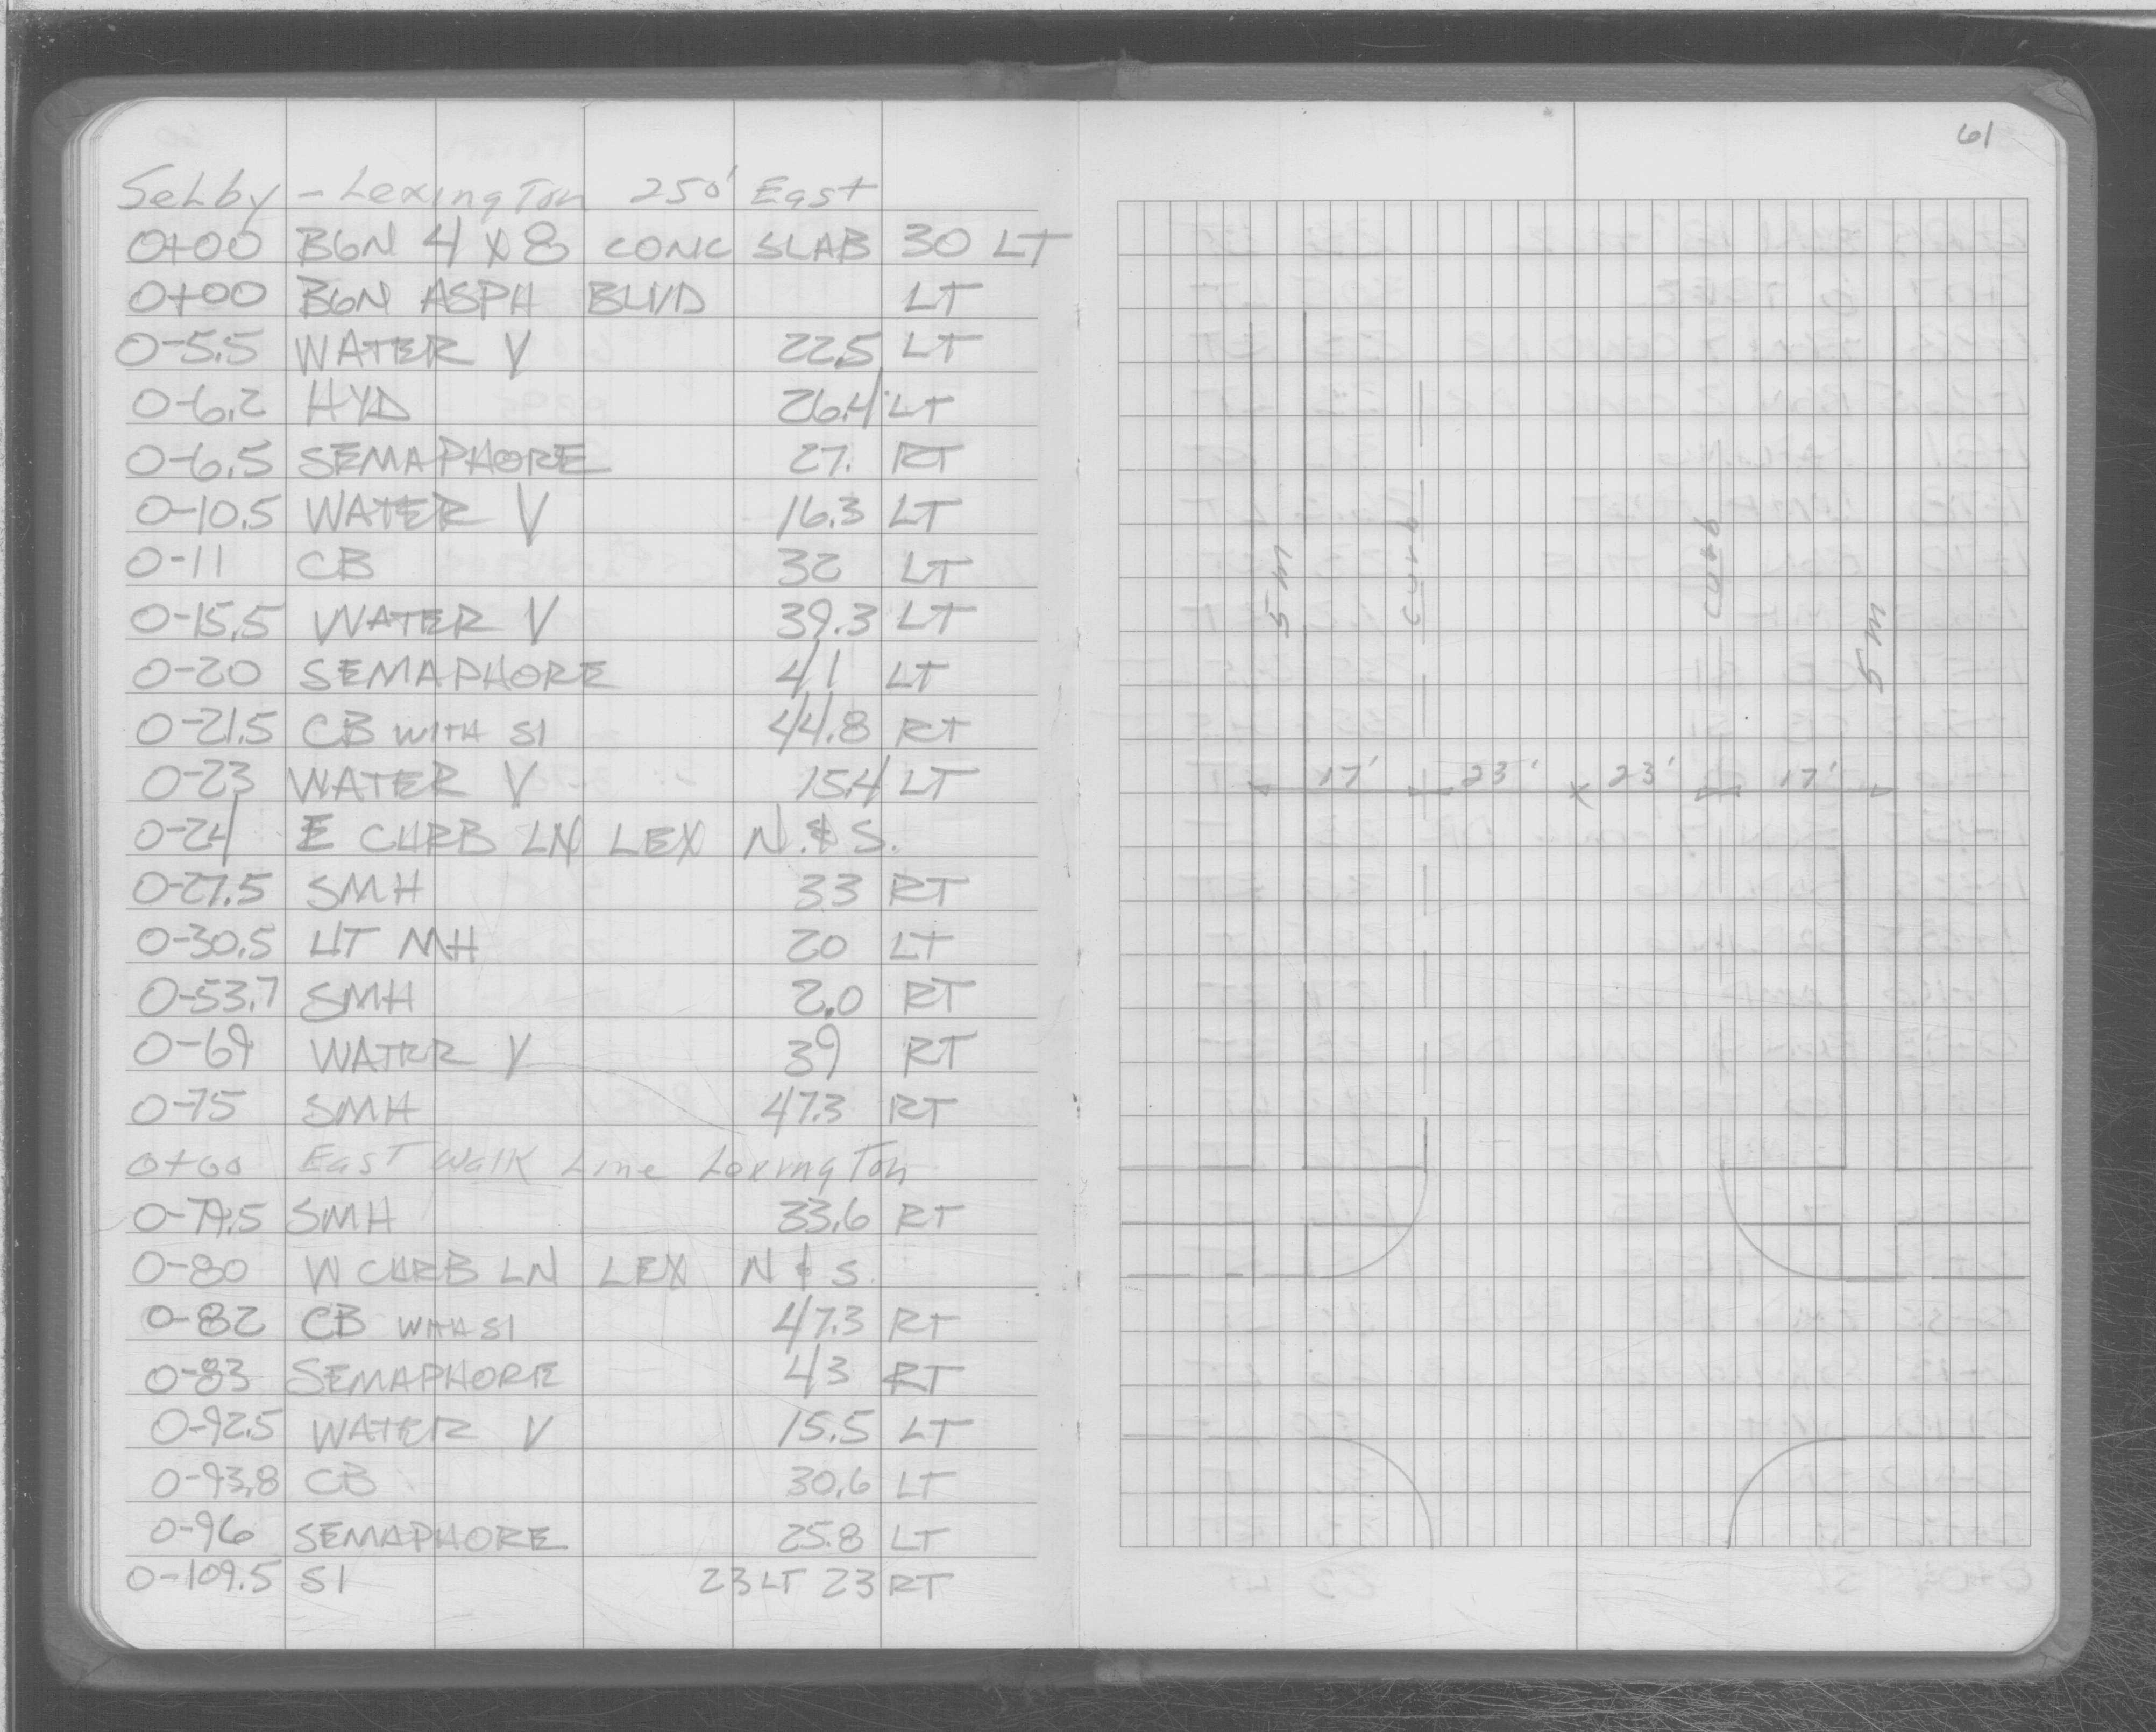 61
Selby - Lexington 250' East
0+00 BGN 4 X 8 CONC SLAB 30 LT
0+00 BGN ASPH BLVD LT
0-5.5 WATER V 22.5 LT
0-6.2 HYD 26.4 LT
0-6.5 SEMAPHORE 27. RT
0-10.5 WATER V 16.3 LT
0-11 CB 32 LT
0-15.5 WATER V 39.3 LT
0-20 SEMAPHORE 41 LT
0-21.5 CB WITH SI 44.8 RT
0-23 WATER V 15.4 LT
0-24 E CURB LN LEX N. & S.
0-27.5 SMH 33 RT
0-30.5 UT MH 20 LT
0-53.7 SMH 2.0 RT
0-69 WATER V 39 RT
0-75 SMH 47.3 RT
0+00 East Walk Line Lexington
0-79.5 SMH 33.6 RT
0-80 W CURB LN LEX N & S.
0-82 CB WITH SI 47.3 RT
0-83 SEMAPHORE 43 RT
0-92.5 WATER V 15.5 LT
0-93.8 CB 30.6 LT
0-96 SEMAPHORE 25.8 LT
0-109.5 SI 23 LT 23 RT
Curb
Curb
17' 23' 23' 17'